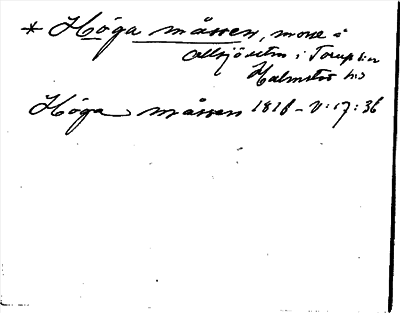 * Höga måssen, mosse å
Allsjöutm i Torup sn
Halmstad hd
Höga måssen 1818 - V:17:36